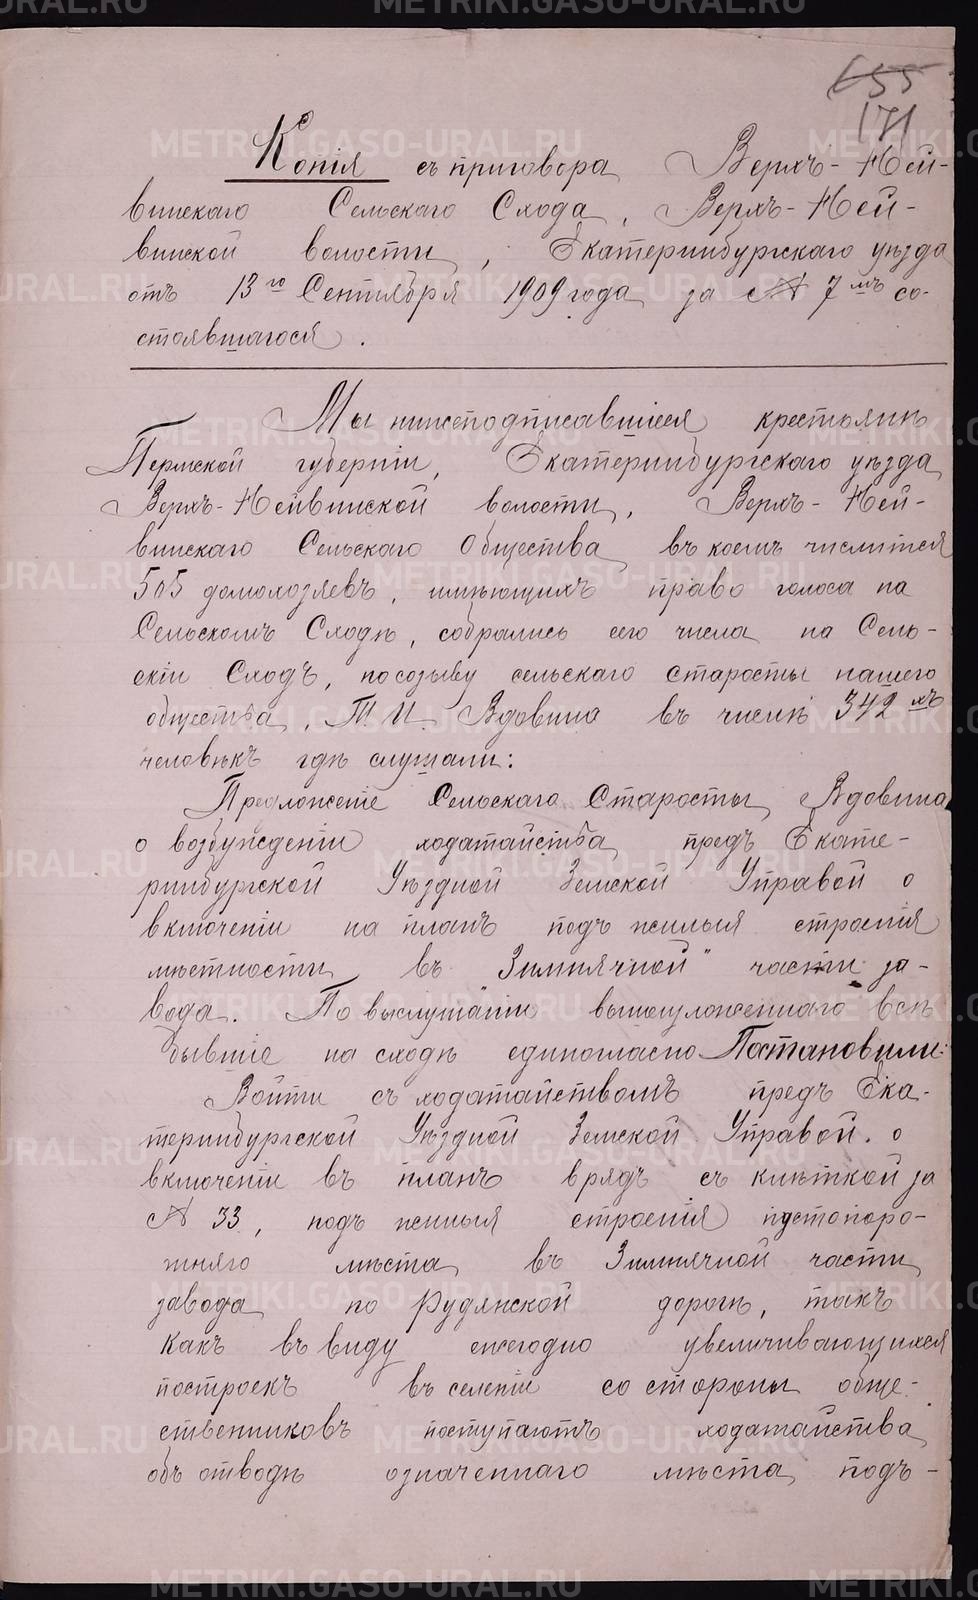 655
171
Копія съ приговора Верхъ-Ней-
винскаго Сельскаго Схода, Верхъ-Ней-
винской волости, Екатеринбургскаго уѣзда
отъ 13го Сентября 1909 года за № 7мъ со-
стоявшагося.
Мы нижеподписавшіеся крестьяне
Пермской губерніи, Екатеринбургскаго уѣзда
Верхъ-Нейвинской волости, Верхъ-Ней-
винскаго Сельскаго Общества въ коемъ числится
505 домохозяевъ, имѣющихъ право голоса на
Сельскомъ Сходѣ, собрались сего числа на Сель-
скій Сходъ, по созыву сельскаго старосты нашего
общества, Т И Вдовина въ числѣ 342хъ
человѣкъ гдѣ слушали:
Предложеніе Сельскаго Старосты Вдовина
о возбужденіи ходатайства предъ Екате-
ринбургской Уѣздной Земской Управой о
включеніи на планъ подъ жилыя строенія
мѣстности въ Зимнячной" части за-
вода. По выслушаніи вышеизложеннаго всѣ
бывшіе на сходѣ единогласно Постановили:
Войти съ ходатайствомъ предъ Ека-
теринбургской Уѣздной Земской Управой. о
включеніи въ планъ врядъ съ клѣткой за
№ 33, подъ жилыя строенія пустопоро-
жняго мѣста въ Зимнячной части
завода по Рудянской дорогѣ, такъ
какъ въ виду ежегодно увеличивающихся
построекъ въ селеніи со стороны обще-
ственниковъ поступаютъ ходатайства
объ отводѣ означеннаго мѣста подъ-
METRIKI.GASO-URAL.RU